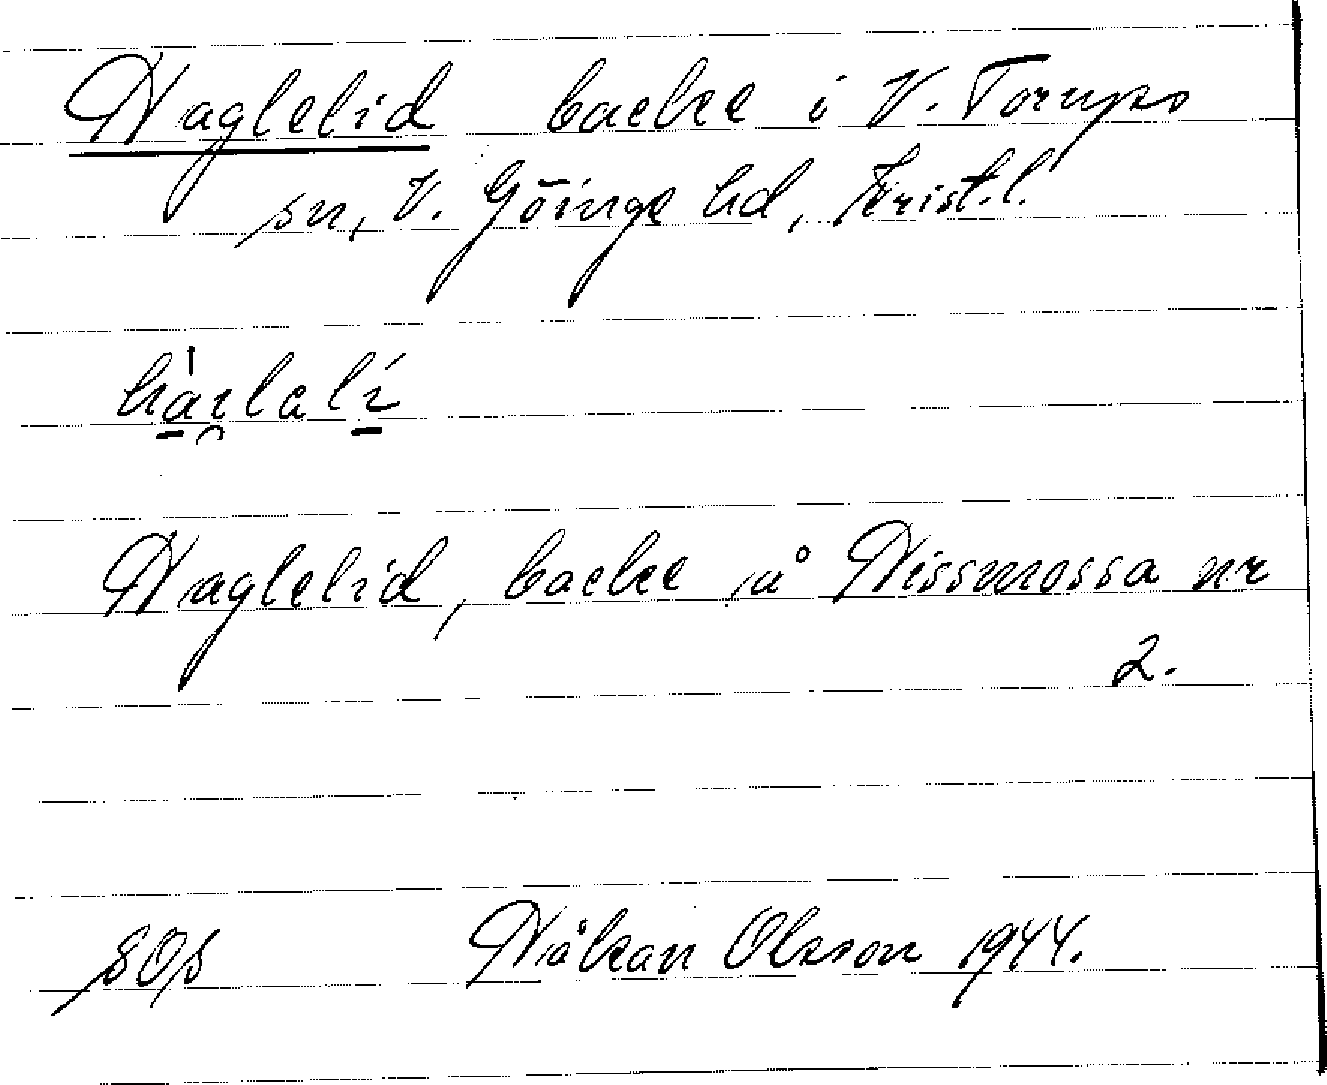 Haglelid backe i V. Torups
sn, V. Göinge hd, Krist. l.
Haglelid, backe på Hissmossa nr
2.
Håkan Olsson 1944.